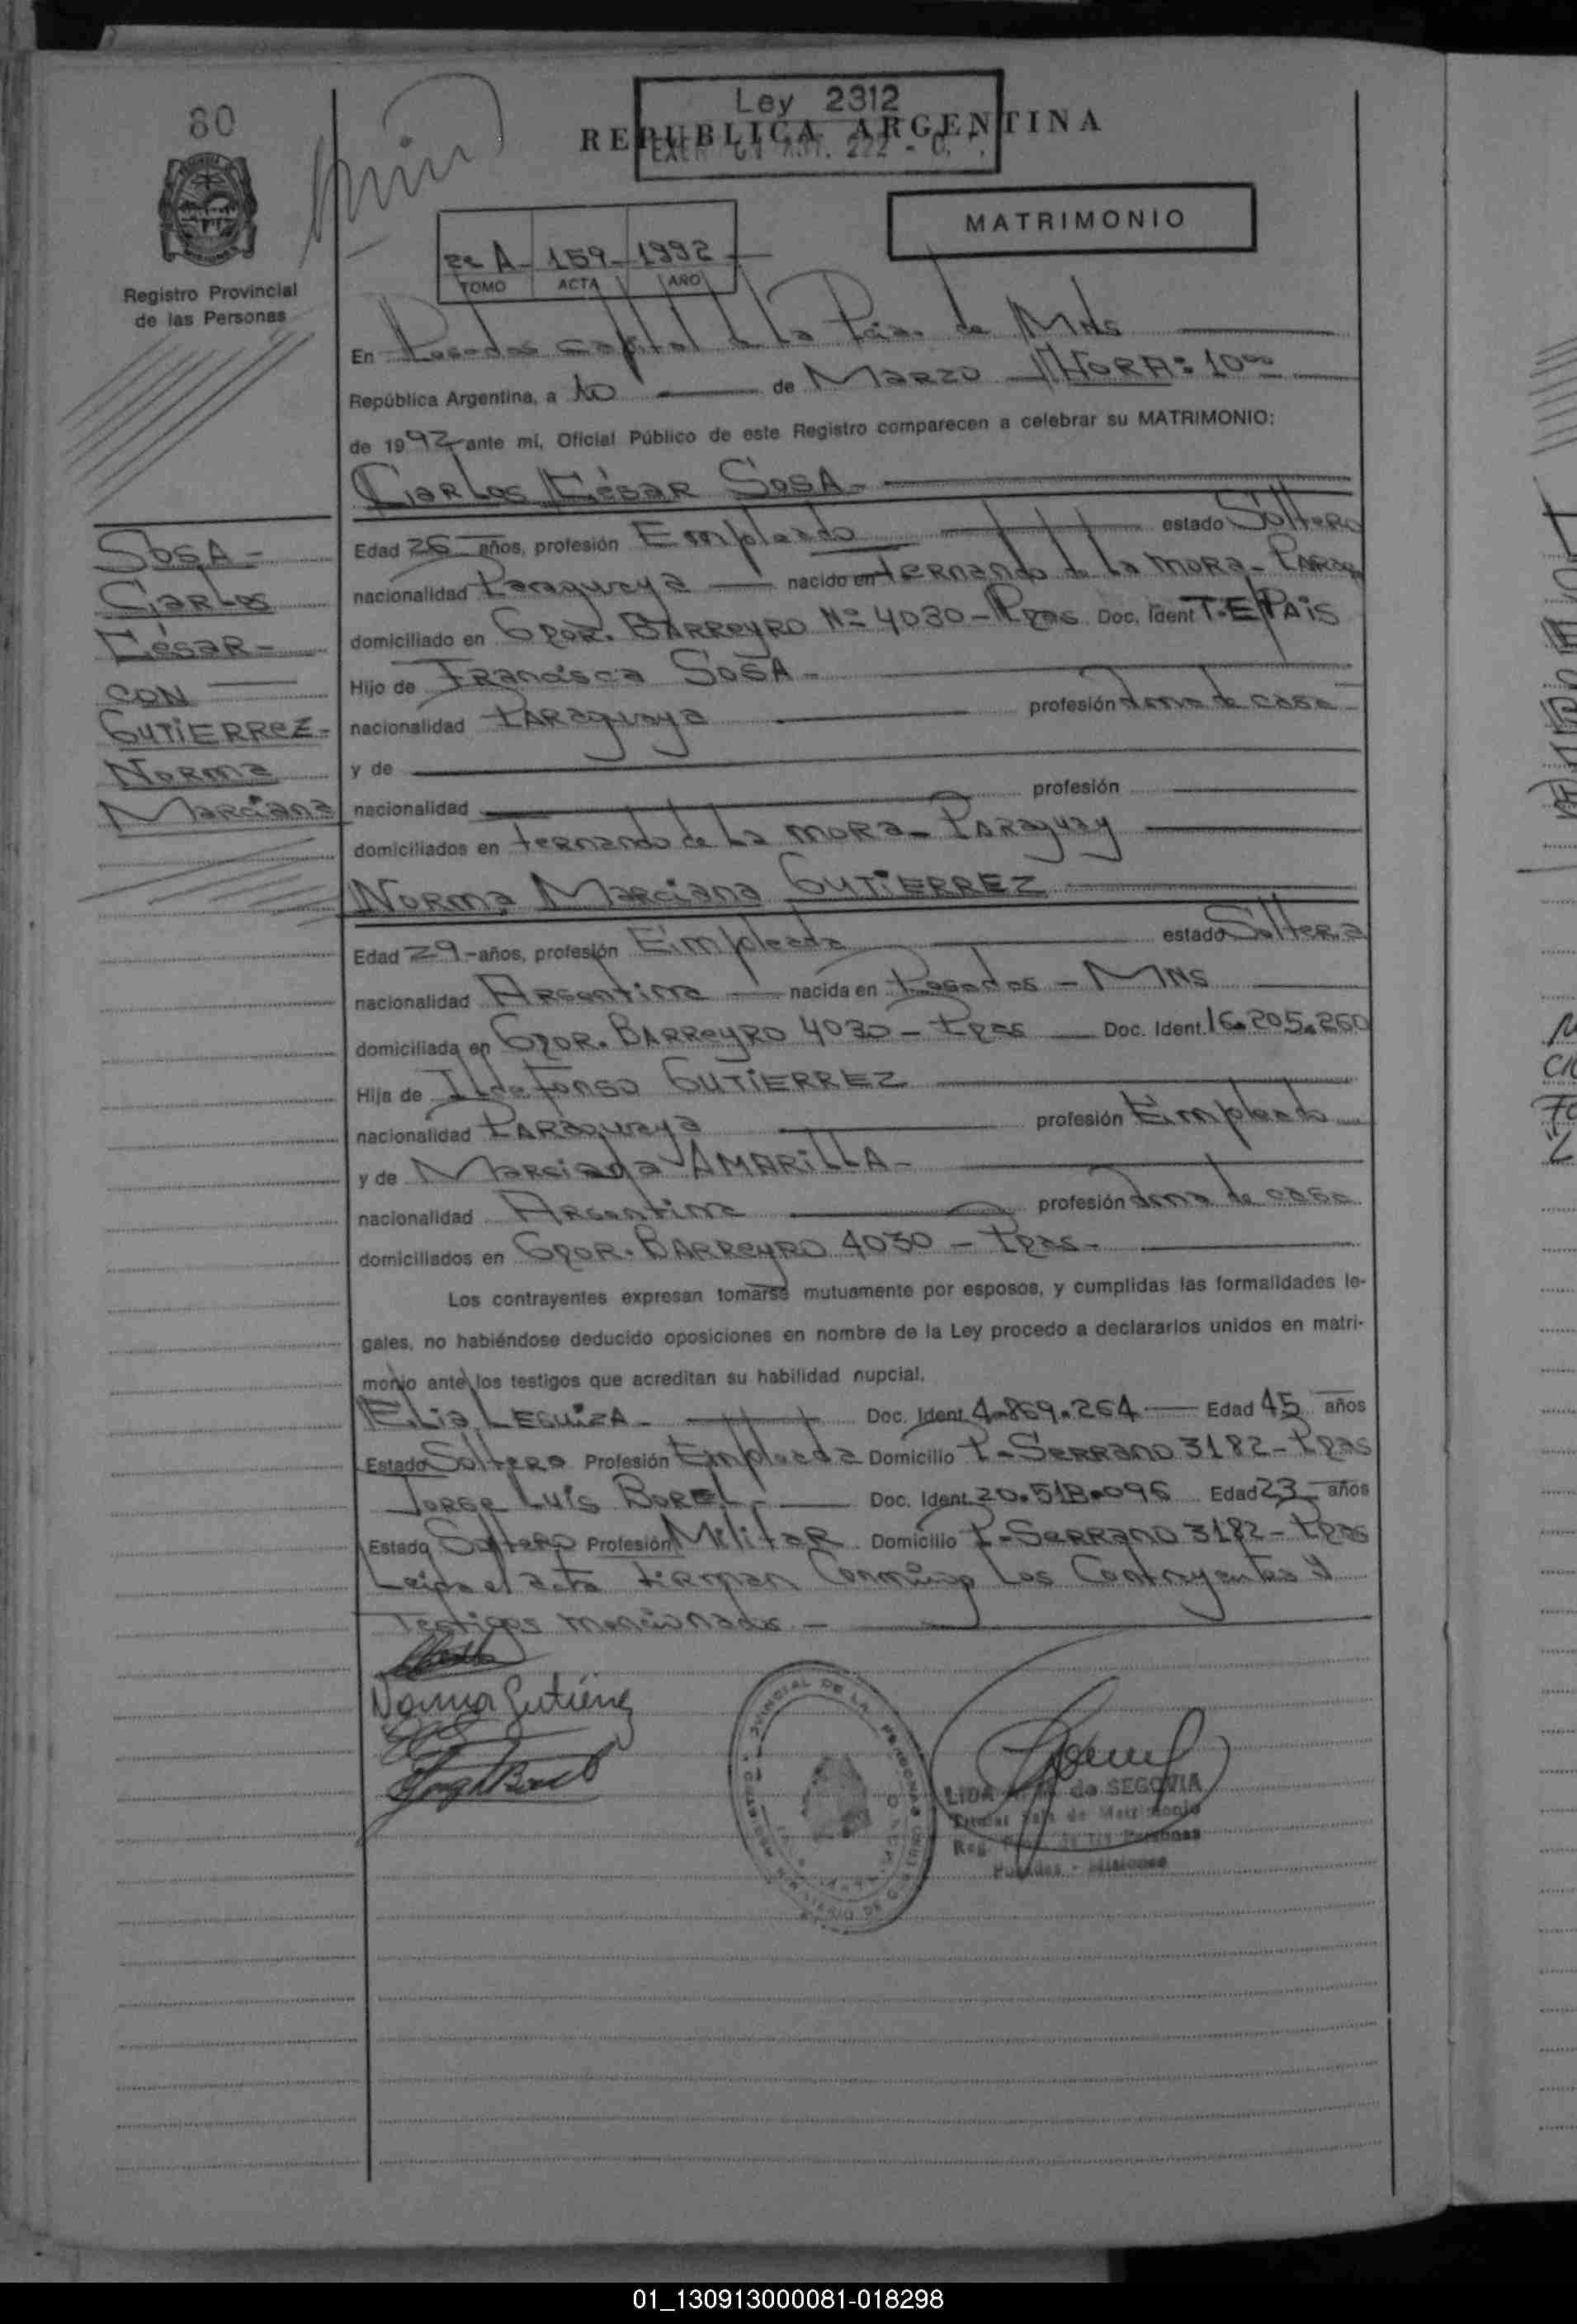 80
Ley 2312
REPUBLICA ARGENTINA
MATRIMONIO
2º A - 159 - 1992
TOMO ACTA AÑO
Registro Provincial
de las Personas
En Posadas Capital de La Pcia. de Mnes
República Argentina, a 10 de Marzo // HORA: 10⁰⁰
de 1992 ante mí, Oficial Público de este Registro comparecen a celebrar su MATRIMONIO:
Carlos César SOSA-
Sosa -
Carlos
César -
con
Gutierrez -
Norma
Marciana
Edad 26 años, profesión Empleado estado Soltero
nacionalidad Paraguaya nacido en Fernando de La Mora - Parag
domiciliado en Gpor. Barreyro Nº 4030 - Ppas Doc. Ident T.E/PAIS
Hijo de Francisca SOSA -
nacionalidad Paraguaya profesión ama de casa
y de
nacionalidad profesión
domiciliados en Fernando de La Mora - Paraguay
Norma Marciana GUTIERREZ
Edad 29 - años, profesión Empleada estado Soltera
nacionalidad Argentina nacida en Posadas - MNS
domiciliada en Gpor. Barreyro 4030 - Ppas Doc. Ident. 16.205.260
Hija de Ildefonso GUTIERREZ
nacionalidad Paraguaya profesión Empleado
y de Marciana AMARILLA -
nacionalidad Argentina profesión ama de casa
domiciliados en Gpor. Barreyro 4030 - Ppas -
Los contrayentes expresan tomarse mutuamente por esposos, y cumplidas las formalidades le-
gales, no habiéndose deducido oposiciones en nombre de la Ley procedo a declararlos unidos en matri-
monio ante los testigos que acreditan su habilidad nupcial.
Elia LEGUIZA - Doc. Ident 4.869.264 Edad 45 años
Estado Soltera Profesión Empleada Domicilio P - Serrano 3182 - Ppas
Jorge Luis Borel - Doc. Ident 20.518.096 Edad 23 años
Estado Soltero Profesión Militar Domicilio P - Serrano 3182 - Ppas
Leida el acta firman Conmigo Los Contrayentes y
Testigos mencionados -
Norma Gutiérrez
LIDA de SEGOVIA
Titular Sala de Matrimonio
Reg. Prov. de las Personas
Posadas - Misiones
01_130913000081-018298